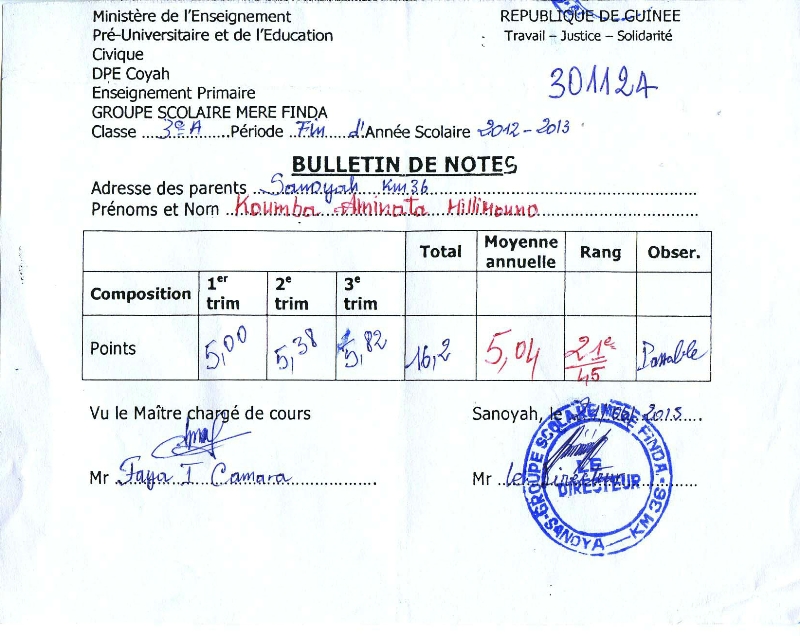 Ministère de l'Enseignement
Pré-Universitaire et de l'Education
Civique
DPE Coyah
Enseignement Primaire
GROUPE SCOLAIRE MERE FINDA
REPUBLIQUE DE GUINEE
Travail – Justice – Solidarité
301124
Classe ....3e A......Période ..Fin d'Année Scolaire 2012-2013
BULLETIN DE NOTES
Adresse des parents ..Sanoyah Km36
Prénoms et Nom ..Koumba Aminata Millimouno
Total Moyenne annuelle Rang Obser.
Composition 1er trim 2e trim 3e trim
Points 5,00 5,38 5,82 16,2 5,04 21e/45 Passable
Vu le Maître chargé de cours
Sanoyah, le 2013
Mr Faya T Camara
Mr Le Directeur
GROUPE SCOLAIRE MERE FINDA
LE DIRECTEUR
SANOYA — KM 36